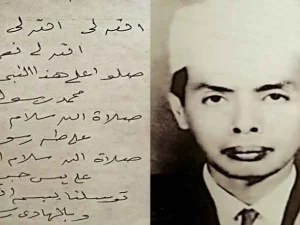 الله لي الله لي
الله لي نعم
صلوا على هذا النبي
محمد رسول
صلاة الله سلام
على طه رسو
صلاة الله سلام ا
على يس حبي
توسلنا ببسم ا
وبالهادي ر